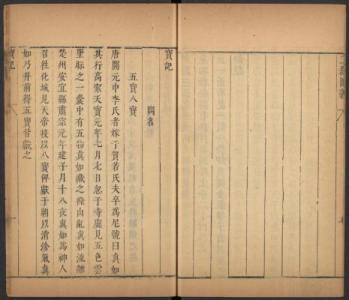 寶記
闕名
五寶八寶
唐開元中李氏者嫁于賀若氏夫卒為尼號曰真如
其行高家天寶元年七月七日忽于寺廡見五色雲
墜臥之一囊中有五物真如藏之
楚州安宜縣肅宗元年建子月十八夜真如為神人
召往化城見天帝授以八寶俾獻于朝以消沴氣真
如乃幷前得五寶皆獻之
寶記